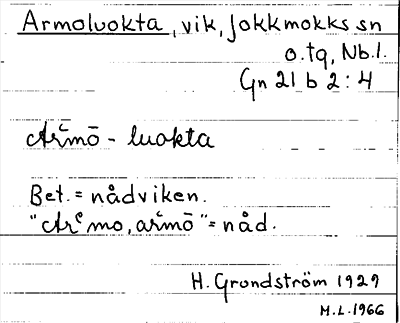 Armoluokta, vik, Jokkmokks sn
o. tg, Nb. l.
Gn 21 b 2:4
Ar̆mō - luokta
Bet. = nådviken.
"Arᵉmo, ar̆mō" = nåd.
H. Grundström 1929
M.L. 1966